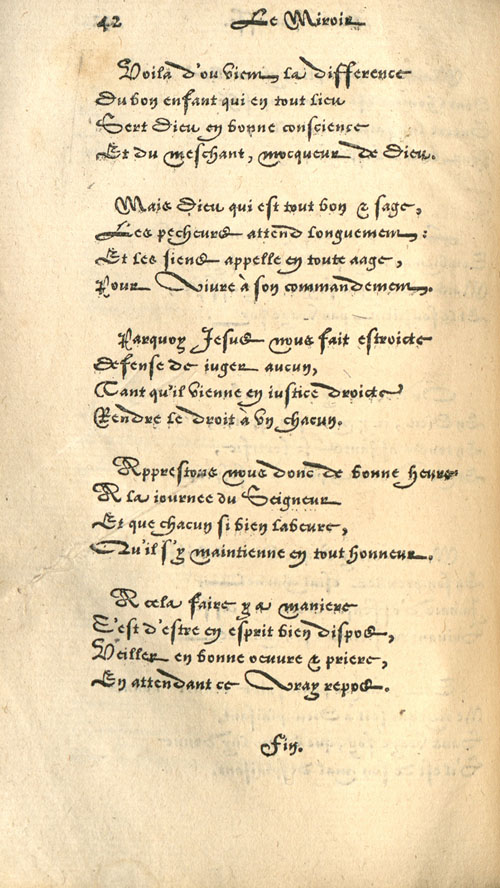 42 Le Miroir
Voila d'ou vient la difference
Du bon enfant qui en tout lieu
Sert Dieu en bonne conscience
Et du meschant, mocqueur de Dieu.
Mais Dieu qui est tout bon & sage,
Les pecheurs attend longuement:
Et les siens appelle en toute aage,
Pour Vivre à son commandement.
Parquoy Jesus nous fait estroicte
defense de iuger aucun,
Tant qu'il vienne en iustice droicte
Rendre le droit à vn chacun.
Apprestons nous donc de bonne heure
A la iournee du Seigneur
Et que chacun si bien labeure,
Qu'il s'y maintienne en tout honneur.
A cela faire y a maniere
C'est d'estre en esprit bien dispos,
Veiller en bonne oeuvre & priere,
En attendant ce Vray repos.
Fin.